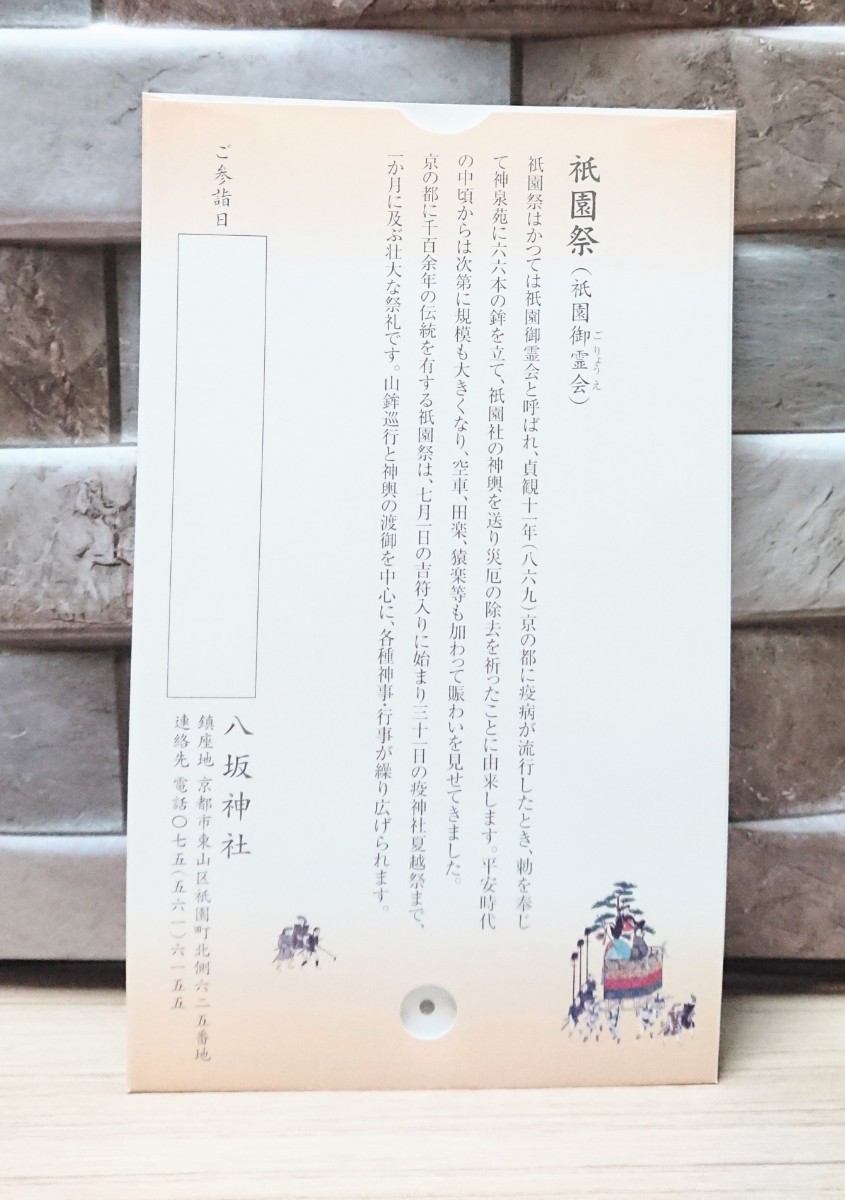 祇園祭(祇園御霊会)
ごりょうえ
祇園祭はかつては祇園御霊会と呼ばれ、貞観十一年(八六九)京の都に疫病が流行したとき、勅を奉じ
て神泉苑に六六本の鉾を立て、祇園社の神輿を送り災厄の除去を祈ったことに由来します。平安時代
の中頃からは次第に規模も大きくなり、空車、田楽、猿楽等も加わって賑わいを見せてきました。
京の都に千百余年の伝統を有する祇園祭は、七月一日の吉符入りに始まり三十一日の疫神社夏越祭まで、
一か月に及ぶ壮大な祭礼です。山鉾巡行と神輿の渡御を中心に、各種神事・行事が繰り広げられます。
ご参詣日
八坂神社
鎮座地 京都市東山区祇園町北側六二五番地
連絡先 電話〇七五(五六一)六一五五